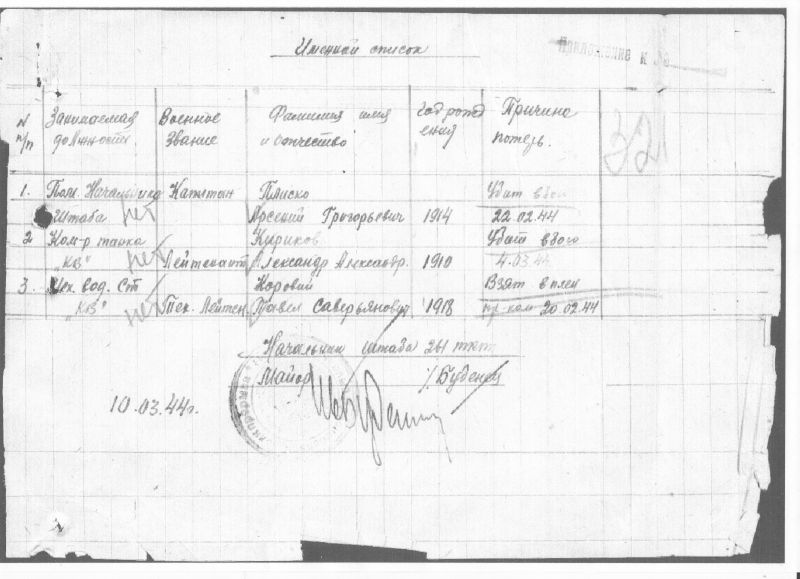 Именной список
32
N Занимаемая Военное Фамилия имя Год рожд Причина
п/п должность Звание и отчество ения потерь.
1. Пом. Начальника Капитан Плиско Убит в бою
Штаба нет Арсений Григорьевич 1914 22.02.44
2 Ком-р танка Кириков Убит в бою
"КВ" нет Лейтенант Александр Александр. 1910 4.03.44
3. Мех. вод. Ст Коровин Взят в плен
"КВ" нет Тех. Лейтен. Павел Саверьянович 1918 пр-ком 20 02.44
Начальник штаба 261
Майор /Буденец/
10.03.44г.